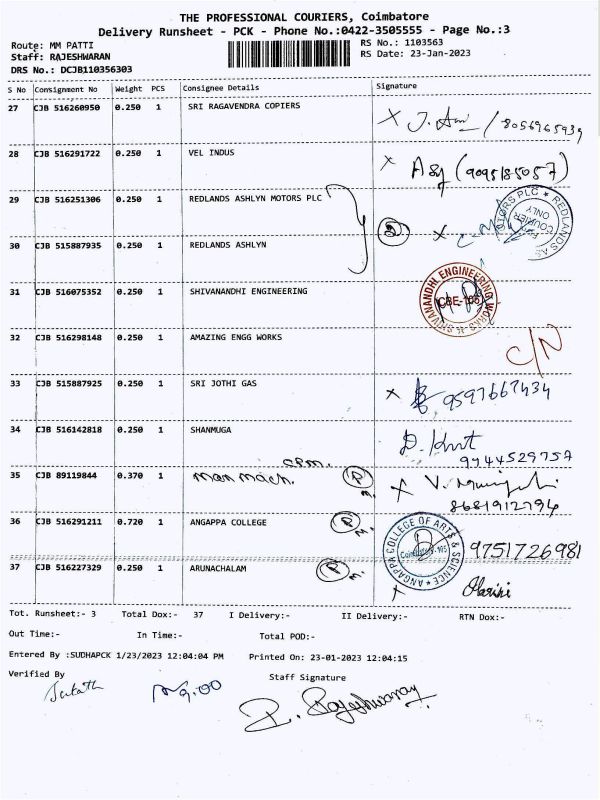 THE PROFESSIONAL COURIERS, Coimbatore
Delivery Runsheet - PCK - Phone No.:0422-3505555 - Page No.:3
Route: MM PATTI
RS No.: 1103563
Staff: RAJESHWARAN
RS Date: 23-Jan-2023
DRS No.: DCJB110356303
S No Consignment No Weight PCS Consignee Details Signature
27 CJB 516260950 0.250 1 SRI RAGAVENDRA COPIERS
X J. / 8056965939
28 CJB 516291722 0.250 1 VEL INDUS
X (9095185057)
29 CJB 516251306 0.250 1 REDLANDS ASHLYN MOTORS PLC
REDLANDS AS MOTORS PLC
COURIER ONLY
X
30 CJB 515887935 0.250 1 REDLANDS ASHLYN
31 CJB 516075352 0.250 1 SHIVANANDHI ENGINEERING
SHIVANANDHI ENGINEERING WORKS
CBE-105
32 CJB 516298148 0.250 1 AMAZING ENGG WORKS
C/N
33 CJB 515887925 0.250 1 SRI JOTHI GAS
X 9597667434
34 CJB 516142818 0.250 1 SHANMUGA
D.
9944529757
35 CJB 89119844 0.370 1 man mach. cpm. P m.
X V.
8681912794
36 CJB 516291211 0.720 1 ANGAPPA COLLEGE P m.
ANGAPPA COLLEGE OF ARTS & SCIENCE
Coimbatore-105
9751726981
37 CJB 516227329 0.250 1 ARUNACHALAM P m.
X Harini
Tot. Runsheet:- 3 Total Dox:- 37 I Delivery:- II Delivery:- RTN Dox:-
Out Time:- In Time:- Total POD:-
Entered By :SUDHAPCK 1/23/2023 12:04:04 PM Printed On: 23-01-2023 12:04:15
Verified By
Staff Signature
9.00
P. Rajeshwaran